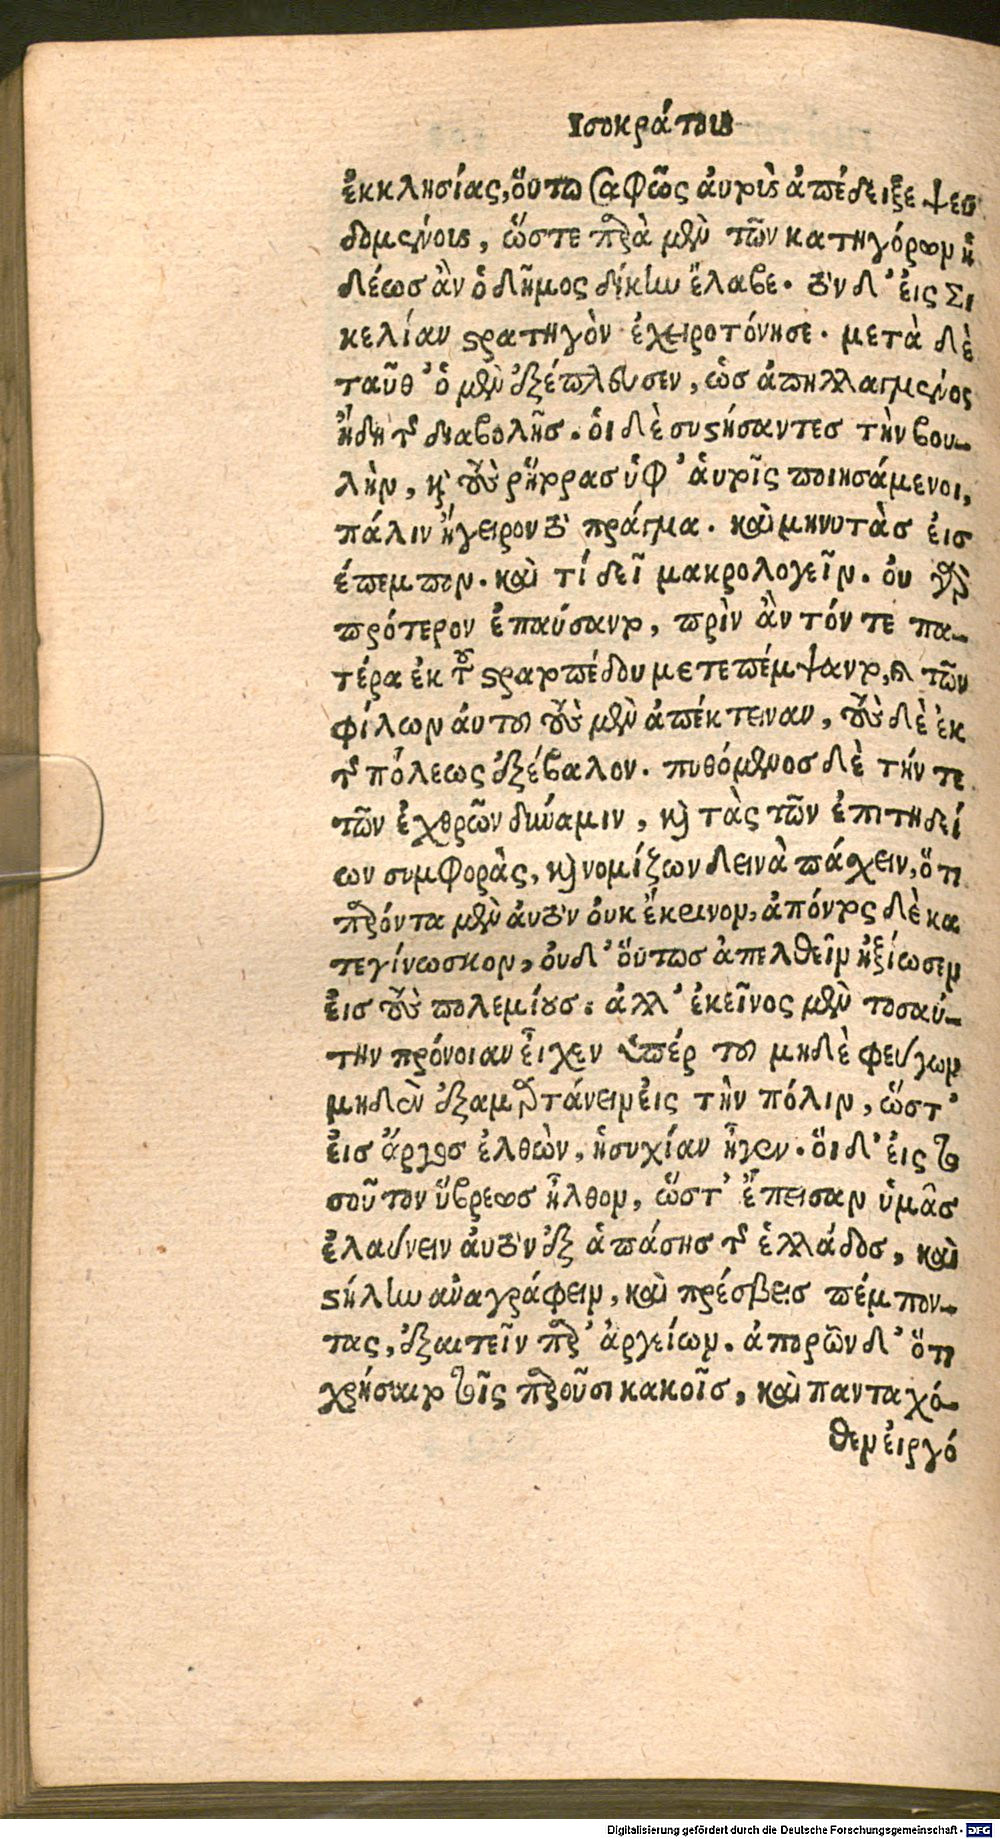 Ισοκράτους
ἐκκλησίας, ὅυτω σαφῶς ἀυτοὺς ἀπέδειξε ψευ
δομένους, ὥστε παρὰ μὲν τῶν κατηγόρων ἡ
δέως ἂν ὁ δῆμος δίκην ἔλαβε. τὸν δ' ἐις Σι
κελίαν στρατηγὸν ἐχειροτόνησε. μετὰ δὲ
ταῦθ' ὁ μὲν ἐξέπλευσεν, ὡς ἀπηλλαγμένος
ἤδη τῆς διαβολῆς. ὁι δὲ συστήσαντες τὴν βου-
λὴν, καὶ τοὺς ῥήτορας ὑφ' ἁυτοῖς ποιησάμενοι,
πάλιν ἤγειρον τὸ πράγμα. καὶ μηνυτὰς ἐις
έπεμπον. καὶ τί δεῖ μακρολογεῖν. ὀυ γὰρ
πρότερον ἐπαύσαντο, πρὶν ἂν τόν τε πα-
τέρα ἐκ τοῦ στρατοπέδου μετεπέμψαντο, καὶ τῶν
φίλων ἀυτοῦ τοὺς μὲν ἀπέκτειναν, τοὺς δὲ ἐκ
τῆς πόλεως ἐξέβαλον. πυθόμενος δὲ τήν τε
τῶν ἐχθρῶν δύναμιν, καὶ τὰς τῶν ἐπιτηδεί
ων συμφορὰς, καὶ νομίζων δεινὰ πάσχειν, ὅτι
παρόντα μὲν ἀυτὸν ὀυκ ἔκρινον, ἀπόντος δὲ κα
τεγίνωσκον, ὀυδ' ὅυτως ἀπελθεῖν ἠξίωσεν
ἐις τοὺς πολεμίους. ἀλλ' ἐκεῖνος μὲν τοσαύ-
την πρόνοιαν εἶχεν ὑπέρ τοῦ μηδὲ φεύγων
μηδὲν ἐξαμαρτάνειν ἐις τὴν πόλιν, ὥστ'
ἐις ἄργος ἐλθὼν, ἡσυχίαν ἦγεν. ὅι δ' ἐις το
σοῦτον ὕβρεως ἦλθον, ὥστ' ἔπεισαν ὑμᾶς
ἐλαύνειν ἀυτὸν ἐξ ἁπάσης τῆς ἑλλάδος, καὶ
στήλην ἀναγράφειν, καὶ πρέσβεις πέμπον-
τας, ἐξαιτεῖν παρ' ἀργείων. ἀπορῶν δ' ὅτι
χρήσαιτο τοῖς παροῦσι κακοῖς, καὶ πανταχό-
θεν ἐιργό
Digitalisierung gefördert durch die Deutsche Forschungsgemeinschaft - DFG